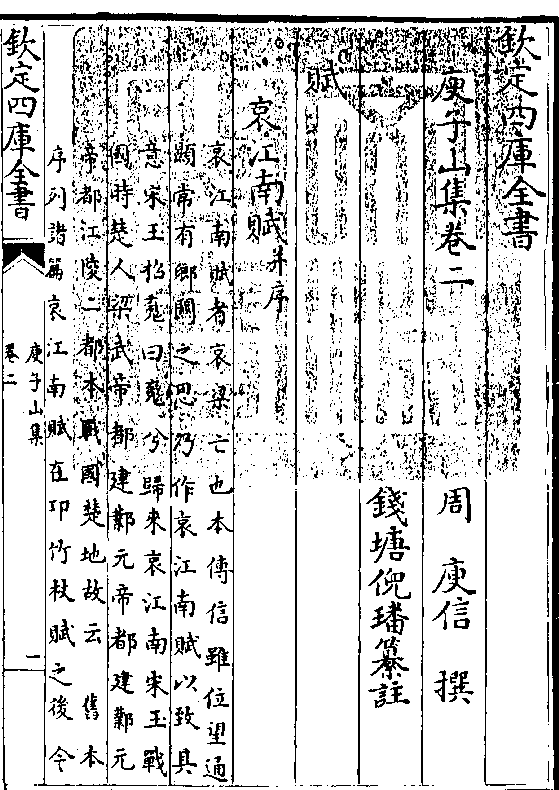 欽定四庫全書
庾子山集卷二
周 庾信 撰
錢塘倪璠纂註
賦
哀江南賦并序
哀江南賦者哀梁亡也本傳信雖位望通
顯常有鄉關之思乃作哀江南賦以致其
意宋玉招䰟曰䰟兮歸來哀江南宋玉戰
國時楚人梁武帝都建鄴元帝都建鄴元
帝都江陵二都本戰國楚地故云 舊本
序列諸篇哀江南賦在卭竹杖賦之後今
欽定四庫全書
庾子山集
卷二
一